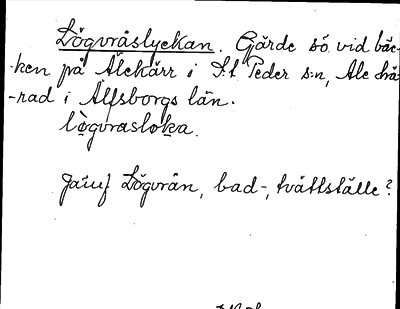 Lögvråslyckan. Gärde sö. vid bäc-
-ken på Älekärr i S:t Peder s:n, Ale hä-
-rad i Älfsborgs län.
lògvraslo̲ka.
Jämf Lögvrån, bad-, tvättställe?